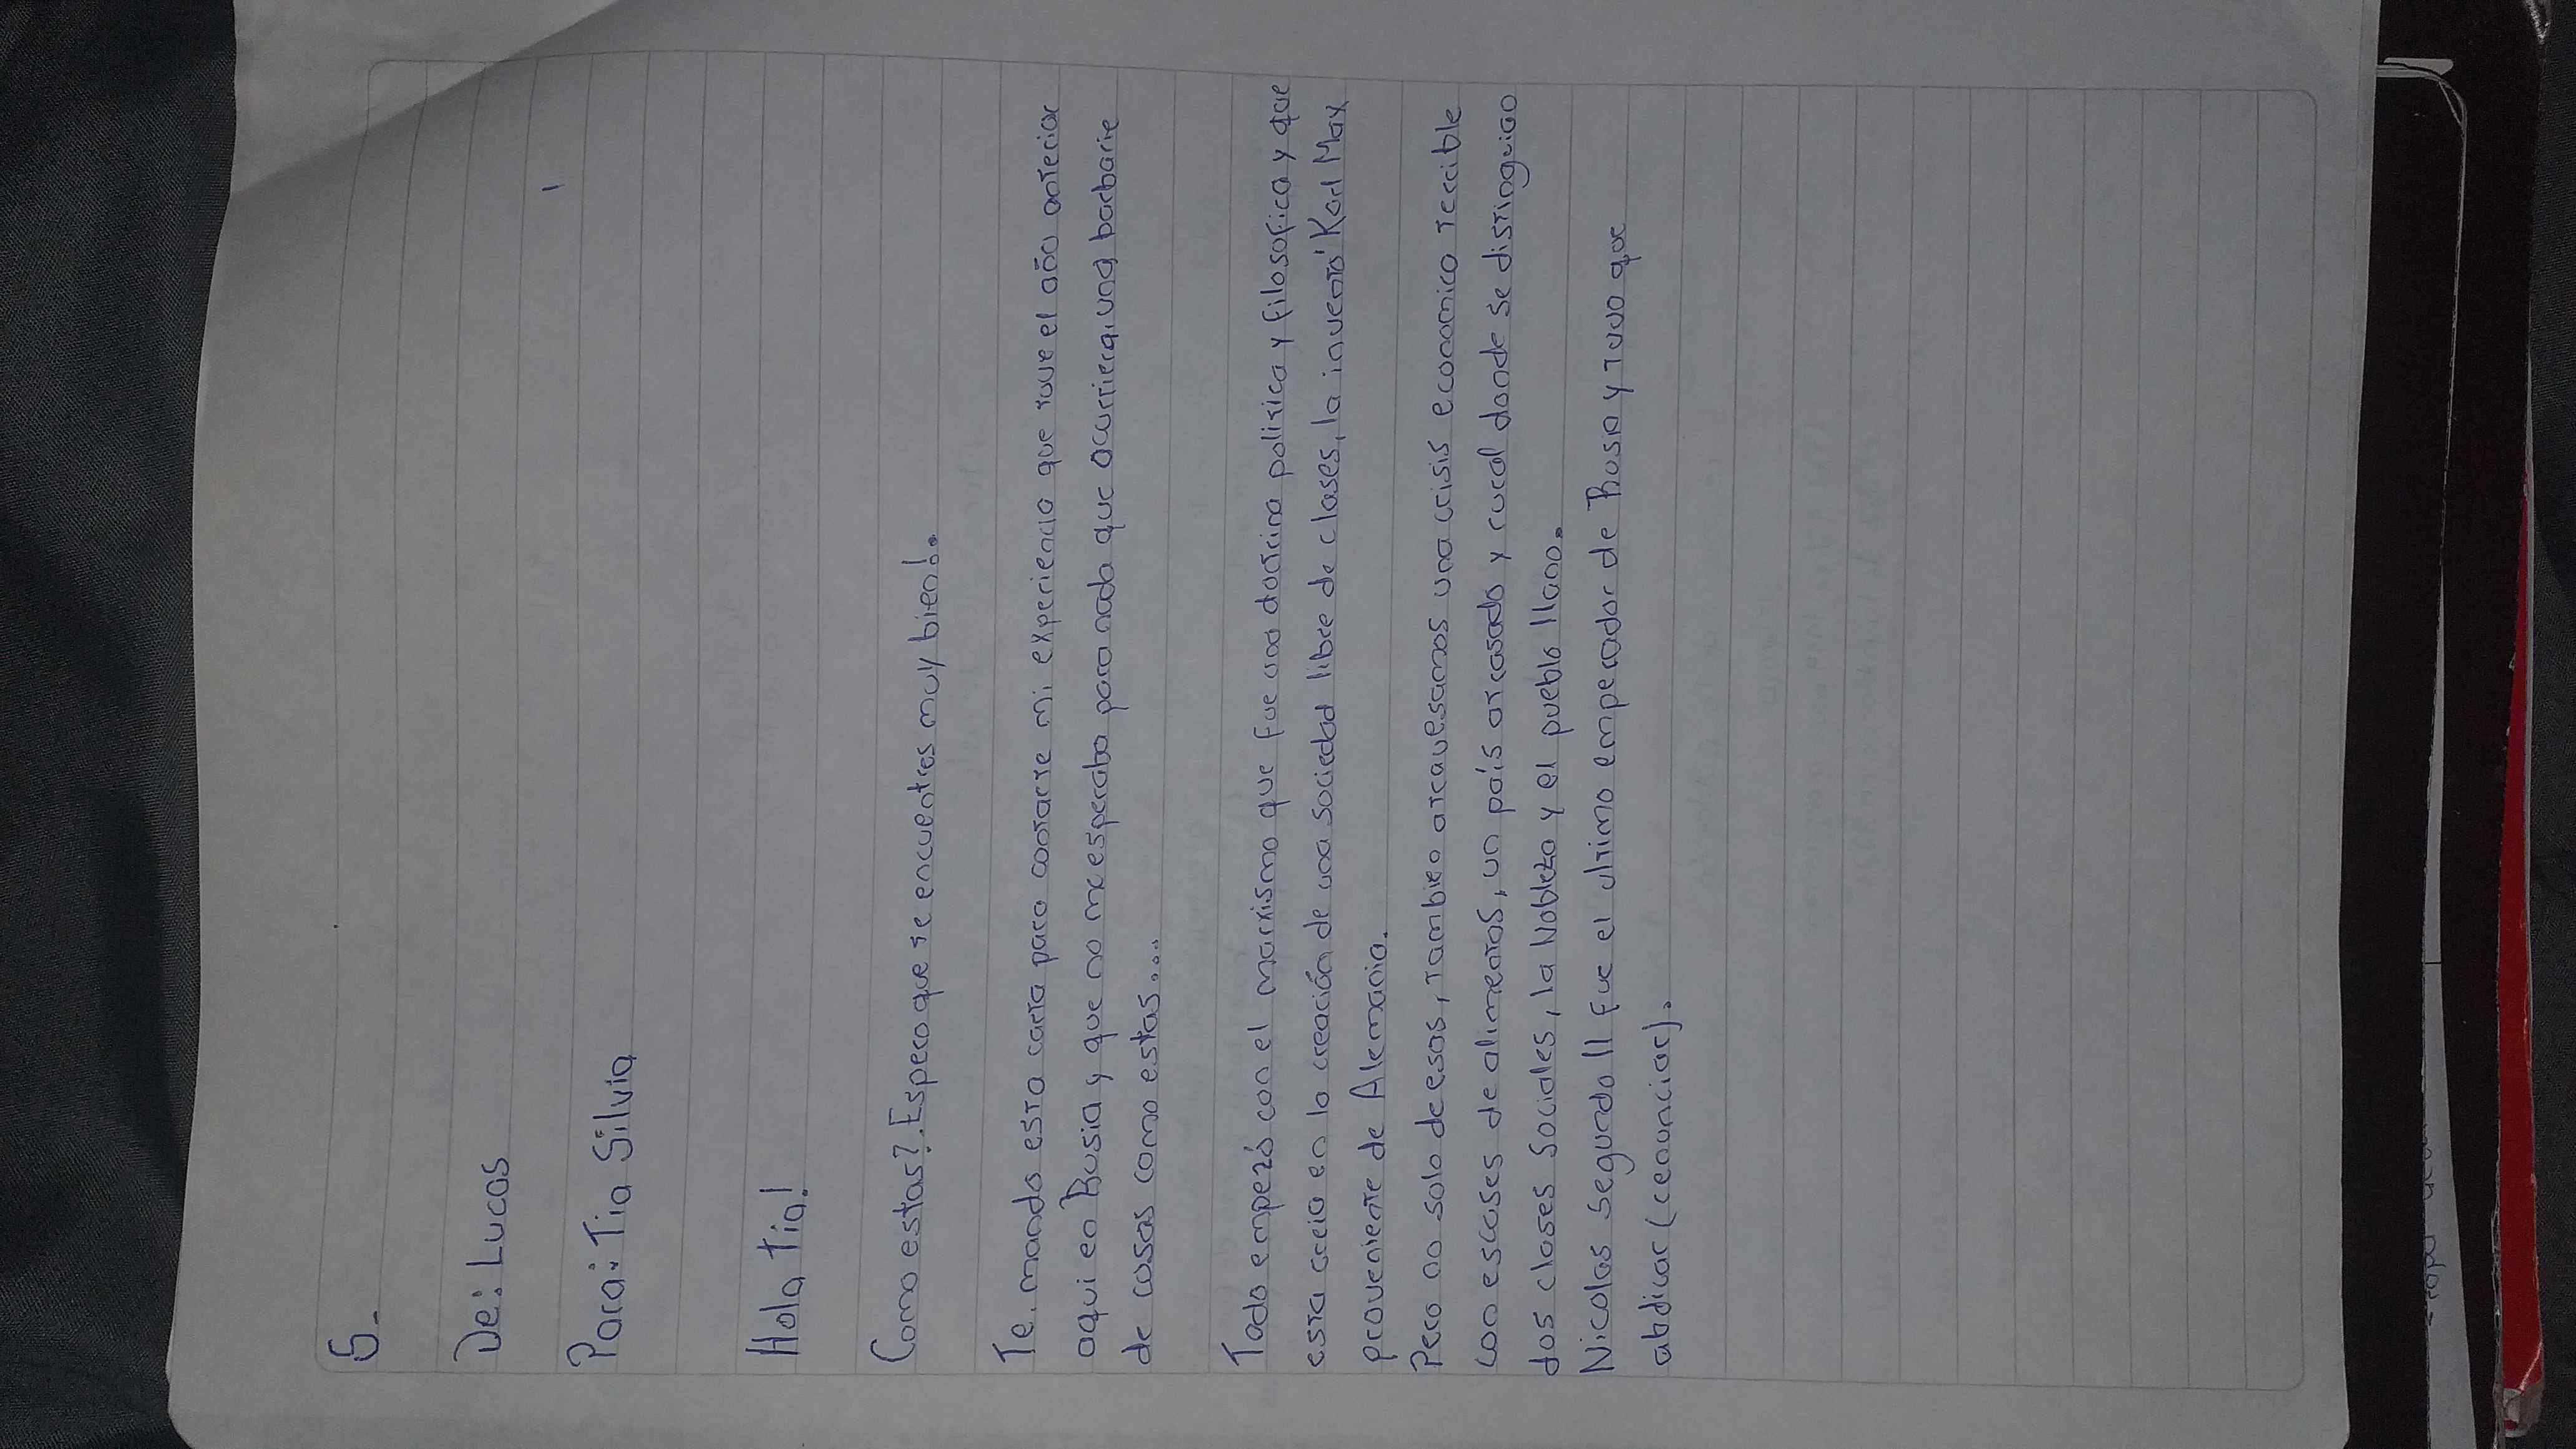 5-
De: Lucas
Para: Tia Silvia
Hola Tia!
Como estas?. Espero que te encuentres muy bien!.
Te mando esta carta para contarte mi experiencia que tuve el año anterior
aqui en Rusia y que no me esperaba para nada que ocurriera una barbarie
de cosas como estas....
Todo empezó con el marxismo que fue una doctrina politica y filosofica y que
esta creia en la creación de una sociedad libre de clases, la inventó Karl Max
proveniente de Alemania.
Pero no solo de esos, tambien atravesamos una crisis economica terrible
con escases de alimentos, un país atrasado y rural donde se distinguian
dos clases Sociales, la Nobleza y el pueblo llano.
Nicolas Segundo II fue el ultimo emperador de Rusia y tuvo que
abdicar (renunciar).